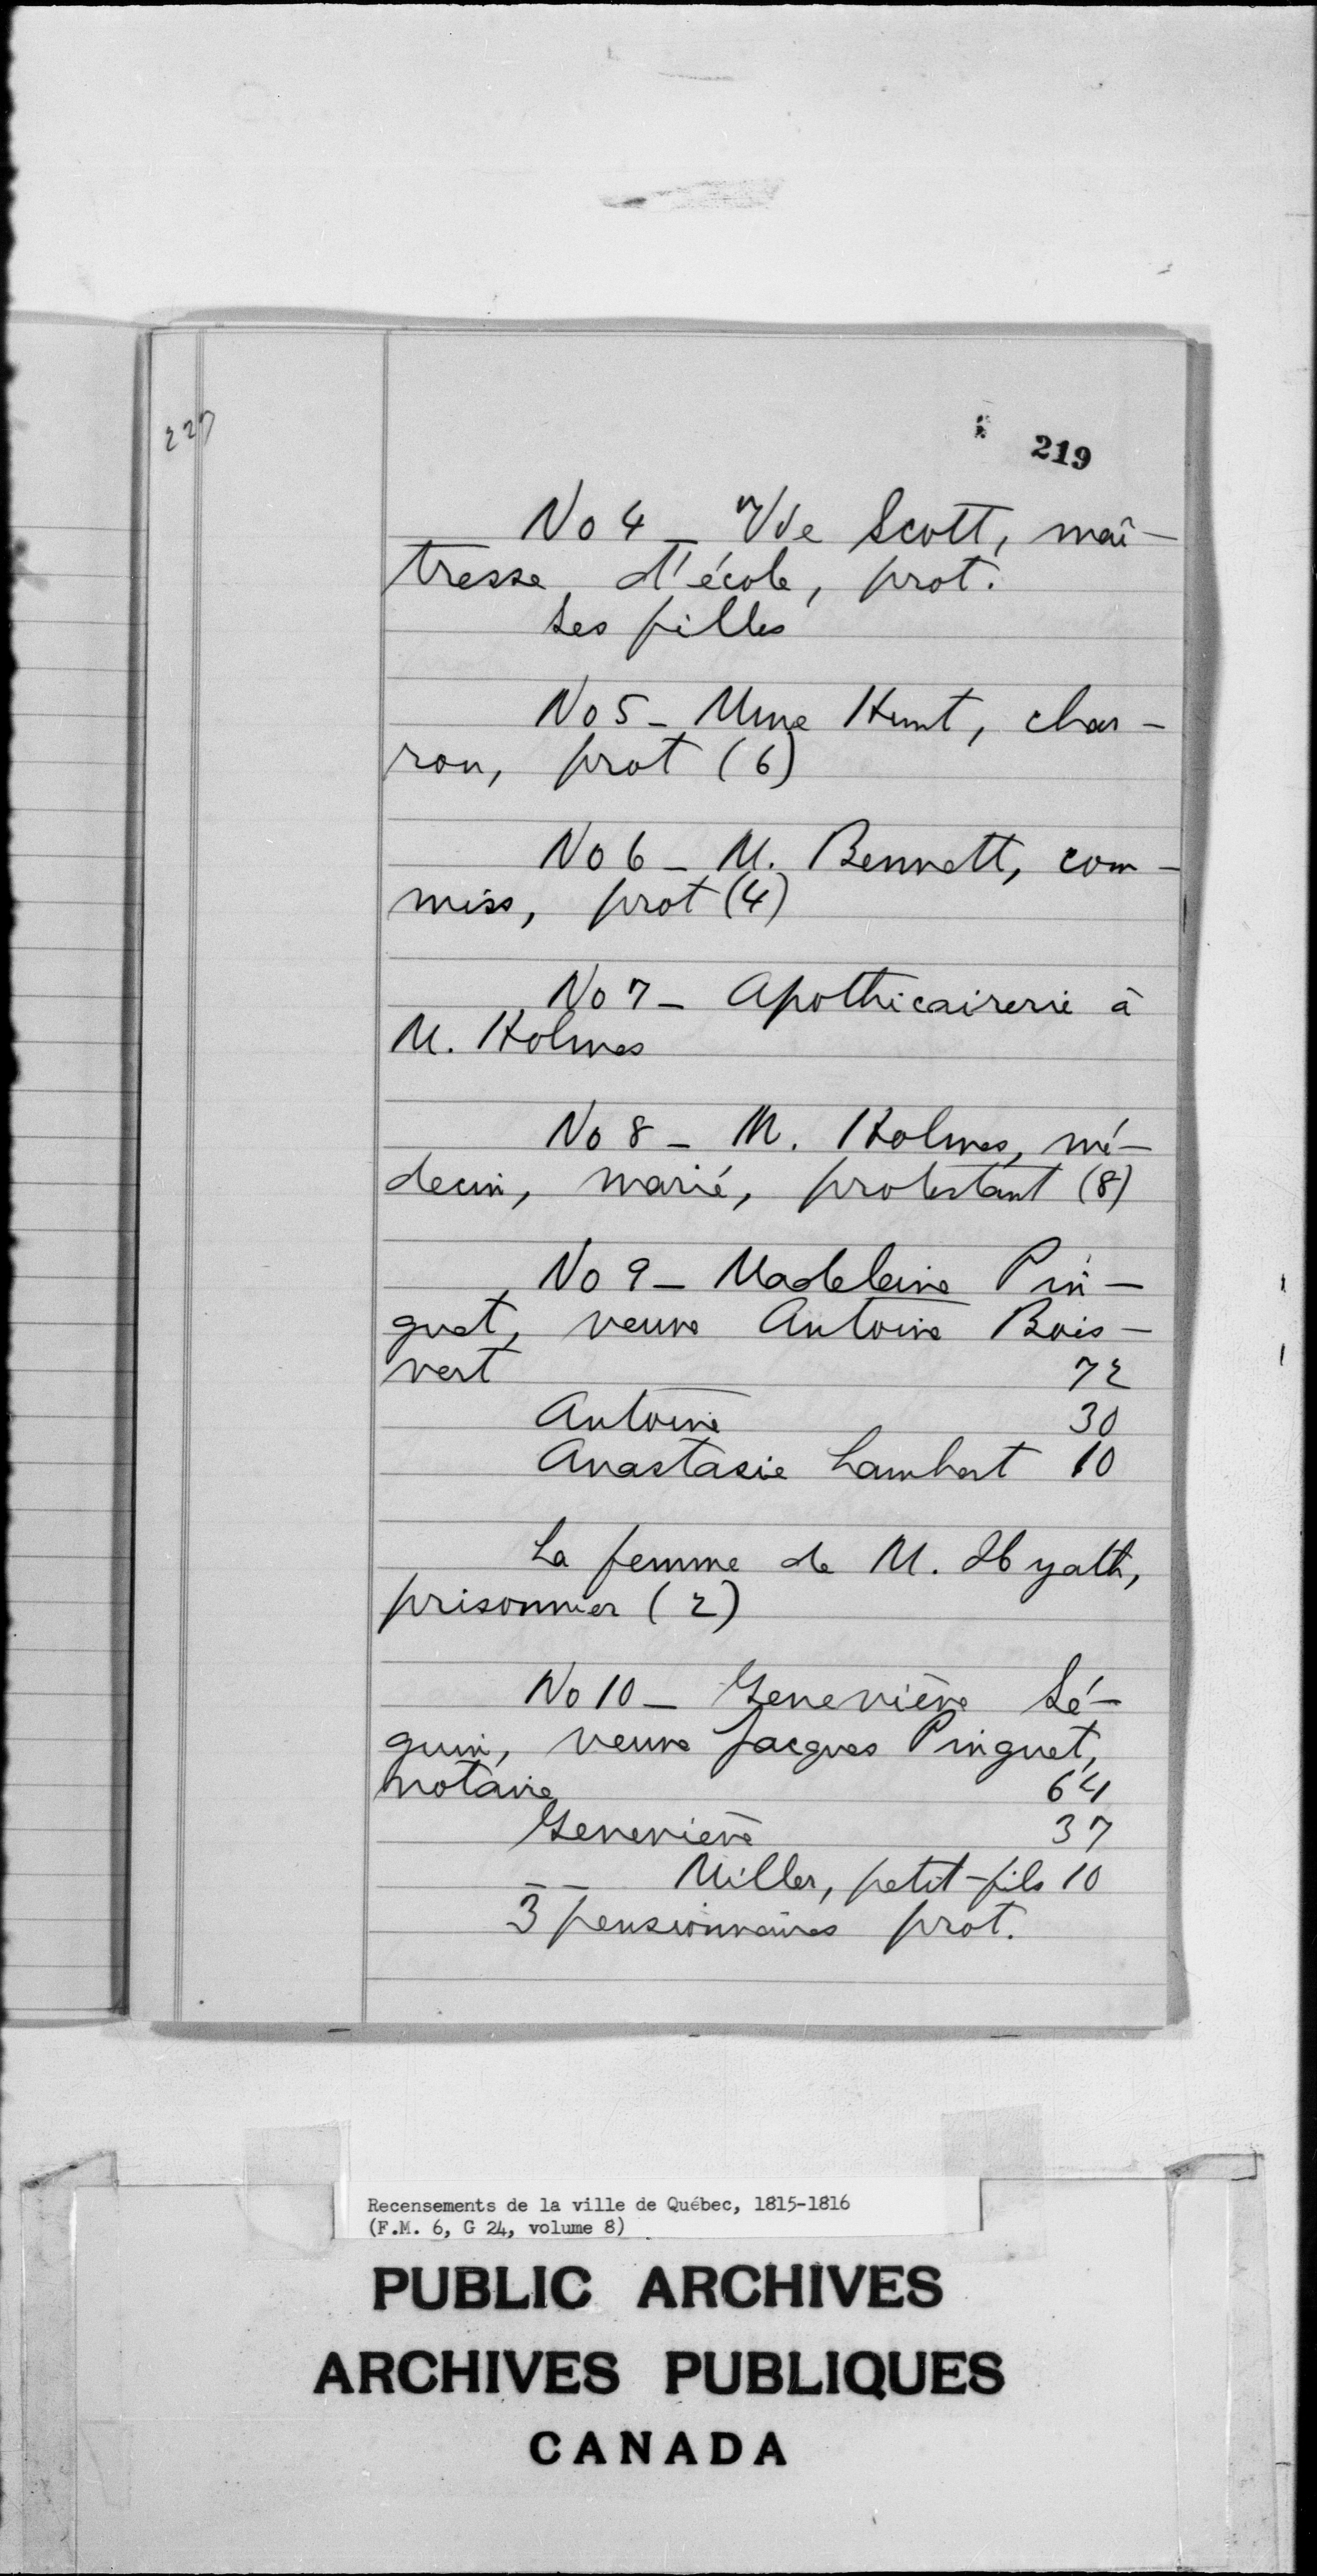 227
219
No 4 _ Vve Scott, maî-
tresse d'école, prot.
Ses filles
No 5 - Mme Hunt, char-
ron, prot (6)
No 6 - M. Bennett, com-
miss, prot (4)
No 7 - Apothicairerie à
M. Holmes
No 8 - M. Holmes, mé-
decin, marié, protestant (8)
No 9 - Madeleine Pin-
guet, veuve Antoine Bois-
vert 72
Antoine 30
Anastasie Lambert 10
La femme de M. Hyatt,
prisonnier (2)
No 10 - Geneviève Sé-
guin, veuve Jacques Pinguet,
notaire 64
Geneviève 37
_ _ Miller, petit-fils 10
3 pensionnaires prot.
Recensements de la ville de Québec, 1815-1816
(F.M. 6, G 24, volume 8)
PUBLIC ARCHIVES
ARCHIVES PUBLIQUES
CANADA